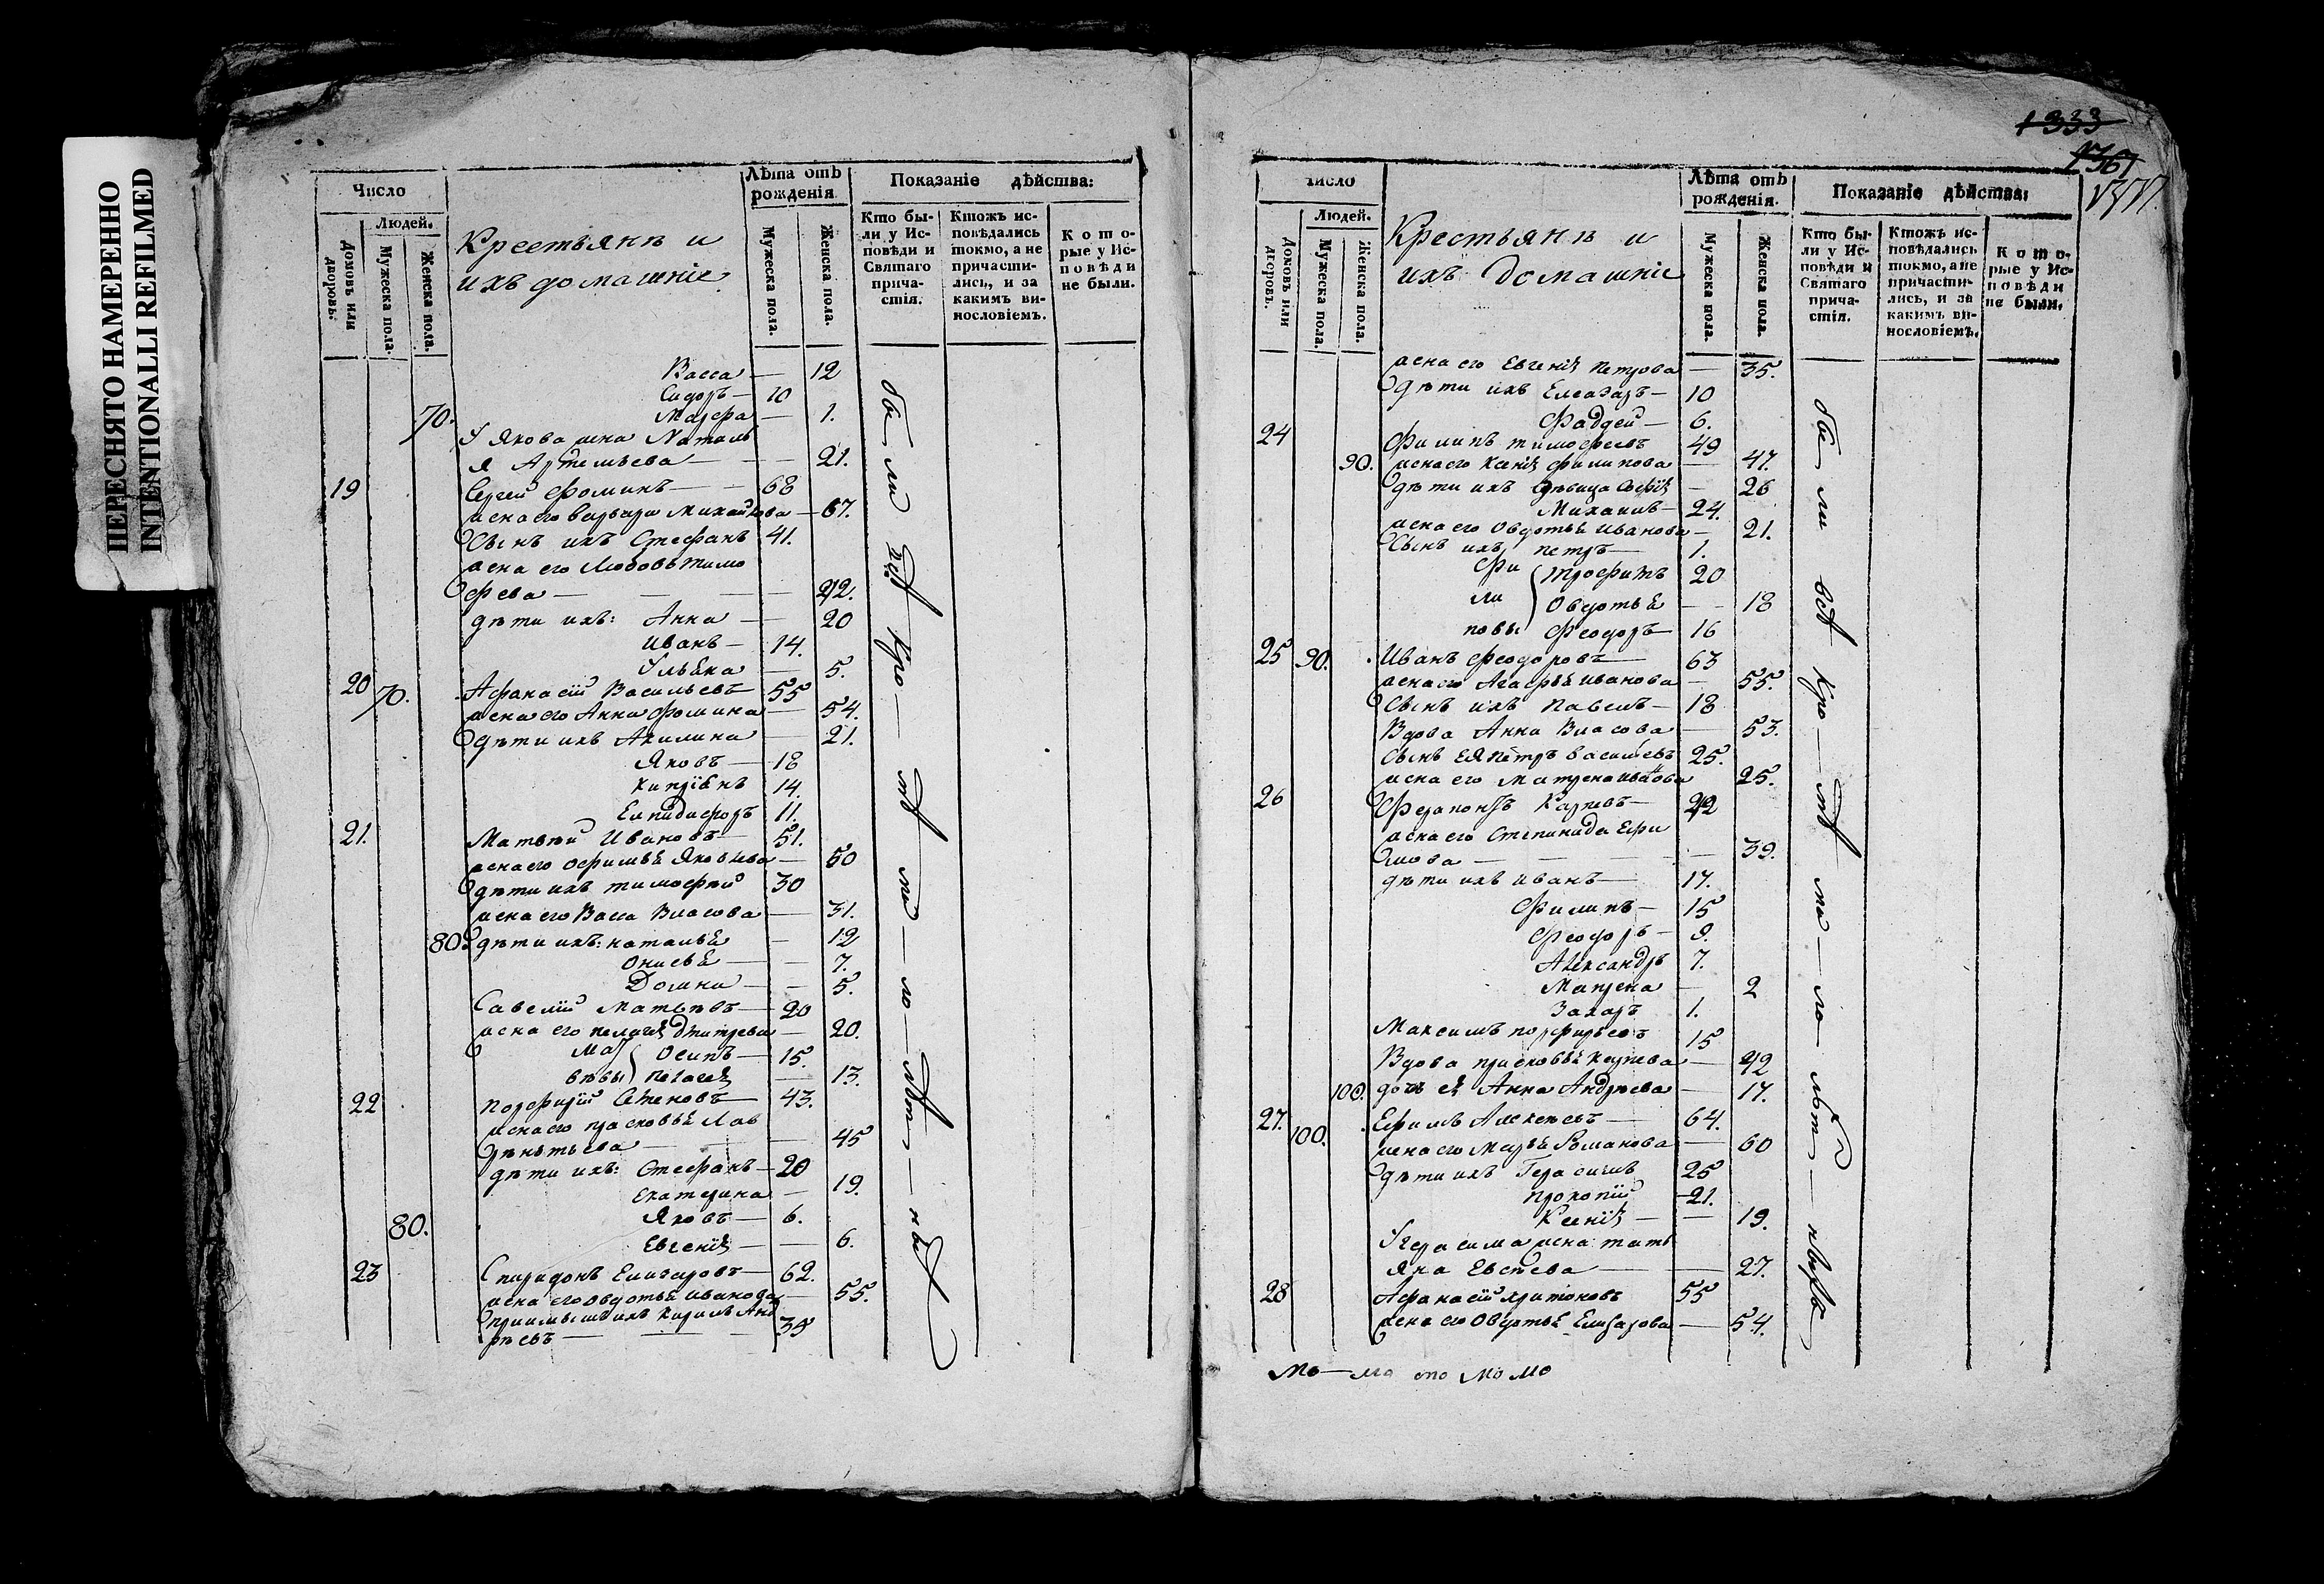 ПЕРЕСНЯТО НАМЕРЕННО
INTENTIONALLI REFILMED
Число
Людей.
Домовъ или дворовъ.
Мужеска пола.
Женска пола.
Крестьянъ и
ихъ домашніе
Лѣта отъ рожденія
Мужеска пола.
Женска пола.
Показаніе дѣйства:
Кто были у Исповѣди и Святаго причастія.
Ктожъ исповѣдались токмо, а не причастились, и за какимъ винословіемъ.
Которые у Исповѣди не были.
Васса — 12
Сидоръ — 10
70. Марфа — 1.
У Якова жена Наталь
я Артемьева — 21.
19 Сергей Фоминъ — 68
жена его Варвара Михайлова — 67.
Сынъ ихъ Стефанъ 41.
жена его Любовь Тимо
фѣева — 42.
дѣти ихъ: Анна — 20
Иванъ — 14.
Ульяна — 5.
20 70. Афанасій Васильевъ 55
жена его Анна Фомина — 54.
дѣти ихъ Акилина — 21.
Яковъ — 18
Кипріянъ 14.
Епидифоръ 11.
21. Матвѣй Ивановъ — 51.
жена его Офимья Яковлева — 50
дѣти ихъ Тимофѣй 30
жена его Васса Власова — 31.
80. дѣти ихъ: Наталья — 12
Онисья — 7.
Домна — 5.
Савелій Матвѣевъ — 20
жена его Пелагея Дмитрева — 20.
Мат Осипъ — 15.
вѣвы Пелагея — 13.
22 Порфирій Семеновъ — 43.
жена его Прасковья Лав
рентьева — 45
дѣти ихъ: Стефанъ — 20
Екатерина — 19.
Яковъ — 6.
80. Евгенія — 6.
23 Спиридонъ Елизаровъ — 62.
жена его Овдотья Иванова — 55.
Пріимышъ ихъ Кирилъ Анд
рѣевъ — 35
1333
1361
Число
Людей.
Домовъ или дворовъ.
Мужеска пола.
Женска пола.
Крестьянъ и
ихъ домашніе
Лѣта отъ рожденія.
Мужеска пола.
Женска пола.
Показаніе дѣйства:
Кто были у Исповѣди и Святаго причастія.
Ктожъ исповѣдались токмо, а не причастились, и за какимъ винословіемъ.
Которые у Исповѣди не были.
жена его Евгенія Петрова — 35.
дѣти ихъ Елеазаръ — 10
Фаддей — 6.
24 Филипъ Тимофеевъ 49
90. жена его Ксенія Филипова — 47.
дѣти ихъ дѣвица Софія — 26
Михаилъ — 24.
жена его Овдотья Иванова — 21.
Сынъ ихъ Петръ — 1.
Фи Трофимъ 20
ли Овдотья — 18
повы Феодоръ — 16
25 90. Иванъ Феодоровъ — 63
жена его Агафья Иванова — 55.
Сынъ ихъ Павелъ — 18
Вдова Анна Власова — 53.
Сынъ ея Петръ Васильевъ 25.
жена его Матрена Иванова 25.
26 Ферапонтъ Карпевъ — 42
жена его Степанида Ефи
мова — 39.
дѣти ихъ Иванъ — 17.
Филипъ — 15
Феодоръ — 9.
Александръ 7.
Матрена — 2
Захаръ 1.
Максимъ Порфирьевъ 15
Вдова Прасковья Карпева — 42
100. дочь ея Анна Андрѣева — 17.
27. 100. Ефимъ Алексѣевъ — 64.
жена его Марья Романова — 60
дѣти ихъ Герасимъ 25
Прокопій — 21.
Ксенія — 19.
У Герасима жена Тать
яна Евсѣева — 27.
28 Афанасій Харитоновъ 55
жена его Овдотья Елизарова — 54.